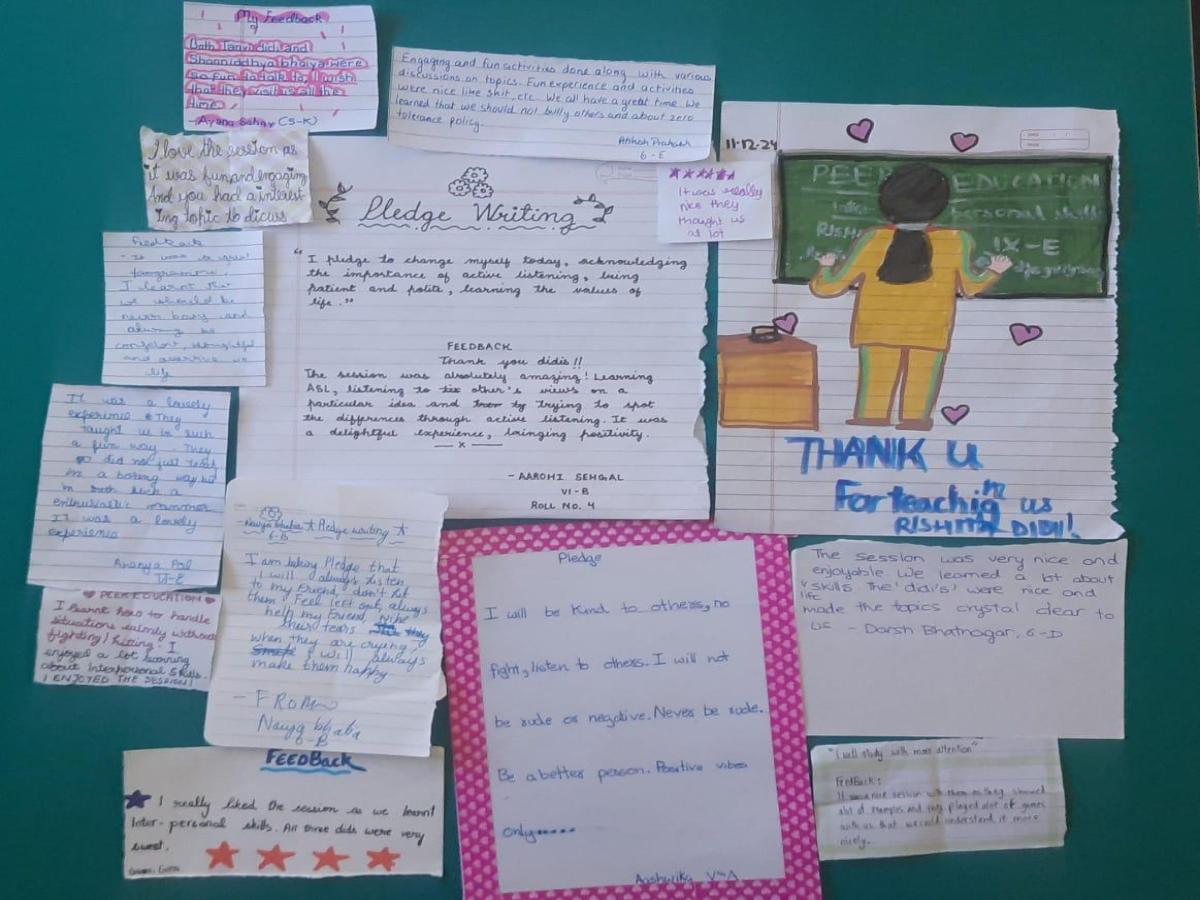 My Feedback
Both Tanvi didi and
Shaaniddhya bhaiya were
so fun to talk to, I wish
that they visit us all the
time
- Ayana Sahay (5-K)
Engaging and fun activities done along with various
discussions on topics. Fun experience and activities
were nice like skit, etc. We all have a great time. We
learned that we should not bully others and about zero
tolerance policy.
Prakash
6-E
I love the session as
it was fun and engaging
And you had a interest
ing topic to dicuss
Pledge Writing
"I pledge to change myself today, acknowledging
the importance of active listening, being
patient and polite, learning the values of
life."
FEEDBACK
Thank you didis!!
The session was absolutely amazing! Learning
ASL, listening to other's views on a
particular idea and trying to spot
the differences through active listening. It was
a delightful experience, bringing positivity.
— x —
- AAROHI SEHGAL
VI-B
ROLL NO. 4
It was really
nice they
thought us
a lot
11-12-24
PEER EDUCATION
Inter personal skills
IX-E
THANK U
For teaching us
RISHITA DIDI!
Feedback
- It was a
programme.
I learnt
we should be
never and
always be
confident,
and assertive in
life
It was a lovely
experience They
taught us in such
a fun way. They
did not just teach
in a boring way but
in such a
enthusiastic manner
It was a lovely
experience
Ananya Pal
VI-E
PEER EDUCATION
I learnt how to handle
situations calmly without
fighting/hitting. I
enjoyed a lot learning
about Interpersonal Skills.
I ENJOYED THE SESSION!
- Navya bhaba ★ Pledge writing ★
6-B
I am taking Pledge that
I will always listen
to my friend, don't let
them feel left out, always
help my friend, wipe
their tears
when they are crying,
I will always
make them happy.
- FROM
Navya bhaba
6-B
Pledge
I will be kind to others, no
fight, listen to others. I will not
be rude or negative. Never be rude.
Be a better person. Positive vibes
only
Aashwika V A
The session was very nice and
enjoyable. We learned a lot about
life skills. The 'didi's' were nice and
made the topics crystal clear to
us - Darsh Bhatnagar, 6-D
FEEDBACK
I really liked the session as we learnt
Inter-personal skills. All three didis were very
sweet.
"I will study with more attention"
Feedback:
It was a nice session with them as they showed
alot of examples and they played alot of games
with us that we could understand it more
nicely.